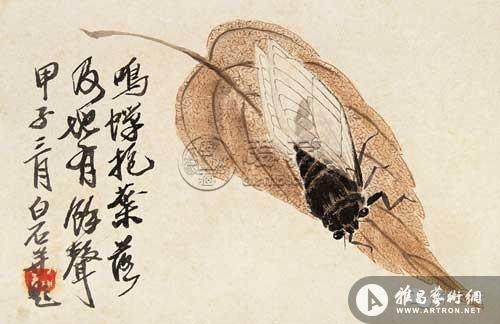 鳴蟬抱葉落
及地有餘聲
甲子三月白石并題
雅昌藝術網
WWW.ARTRON.NET